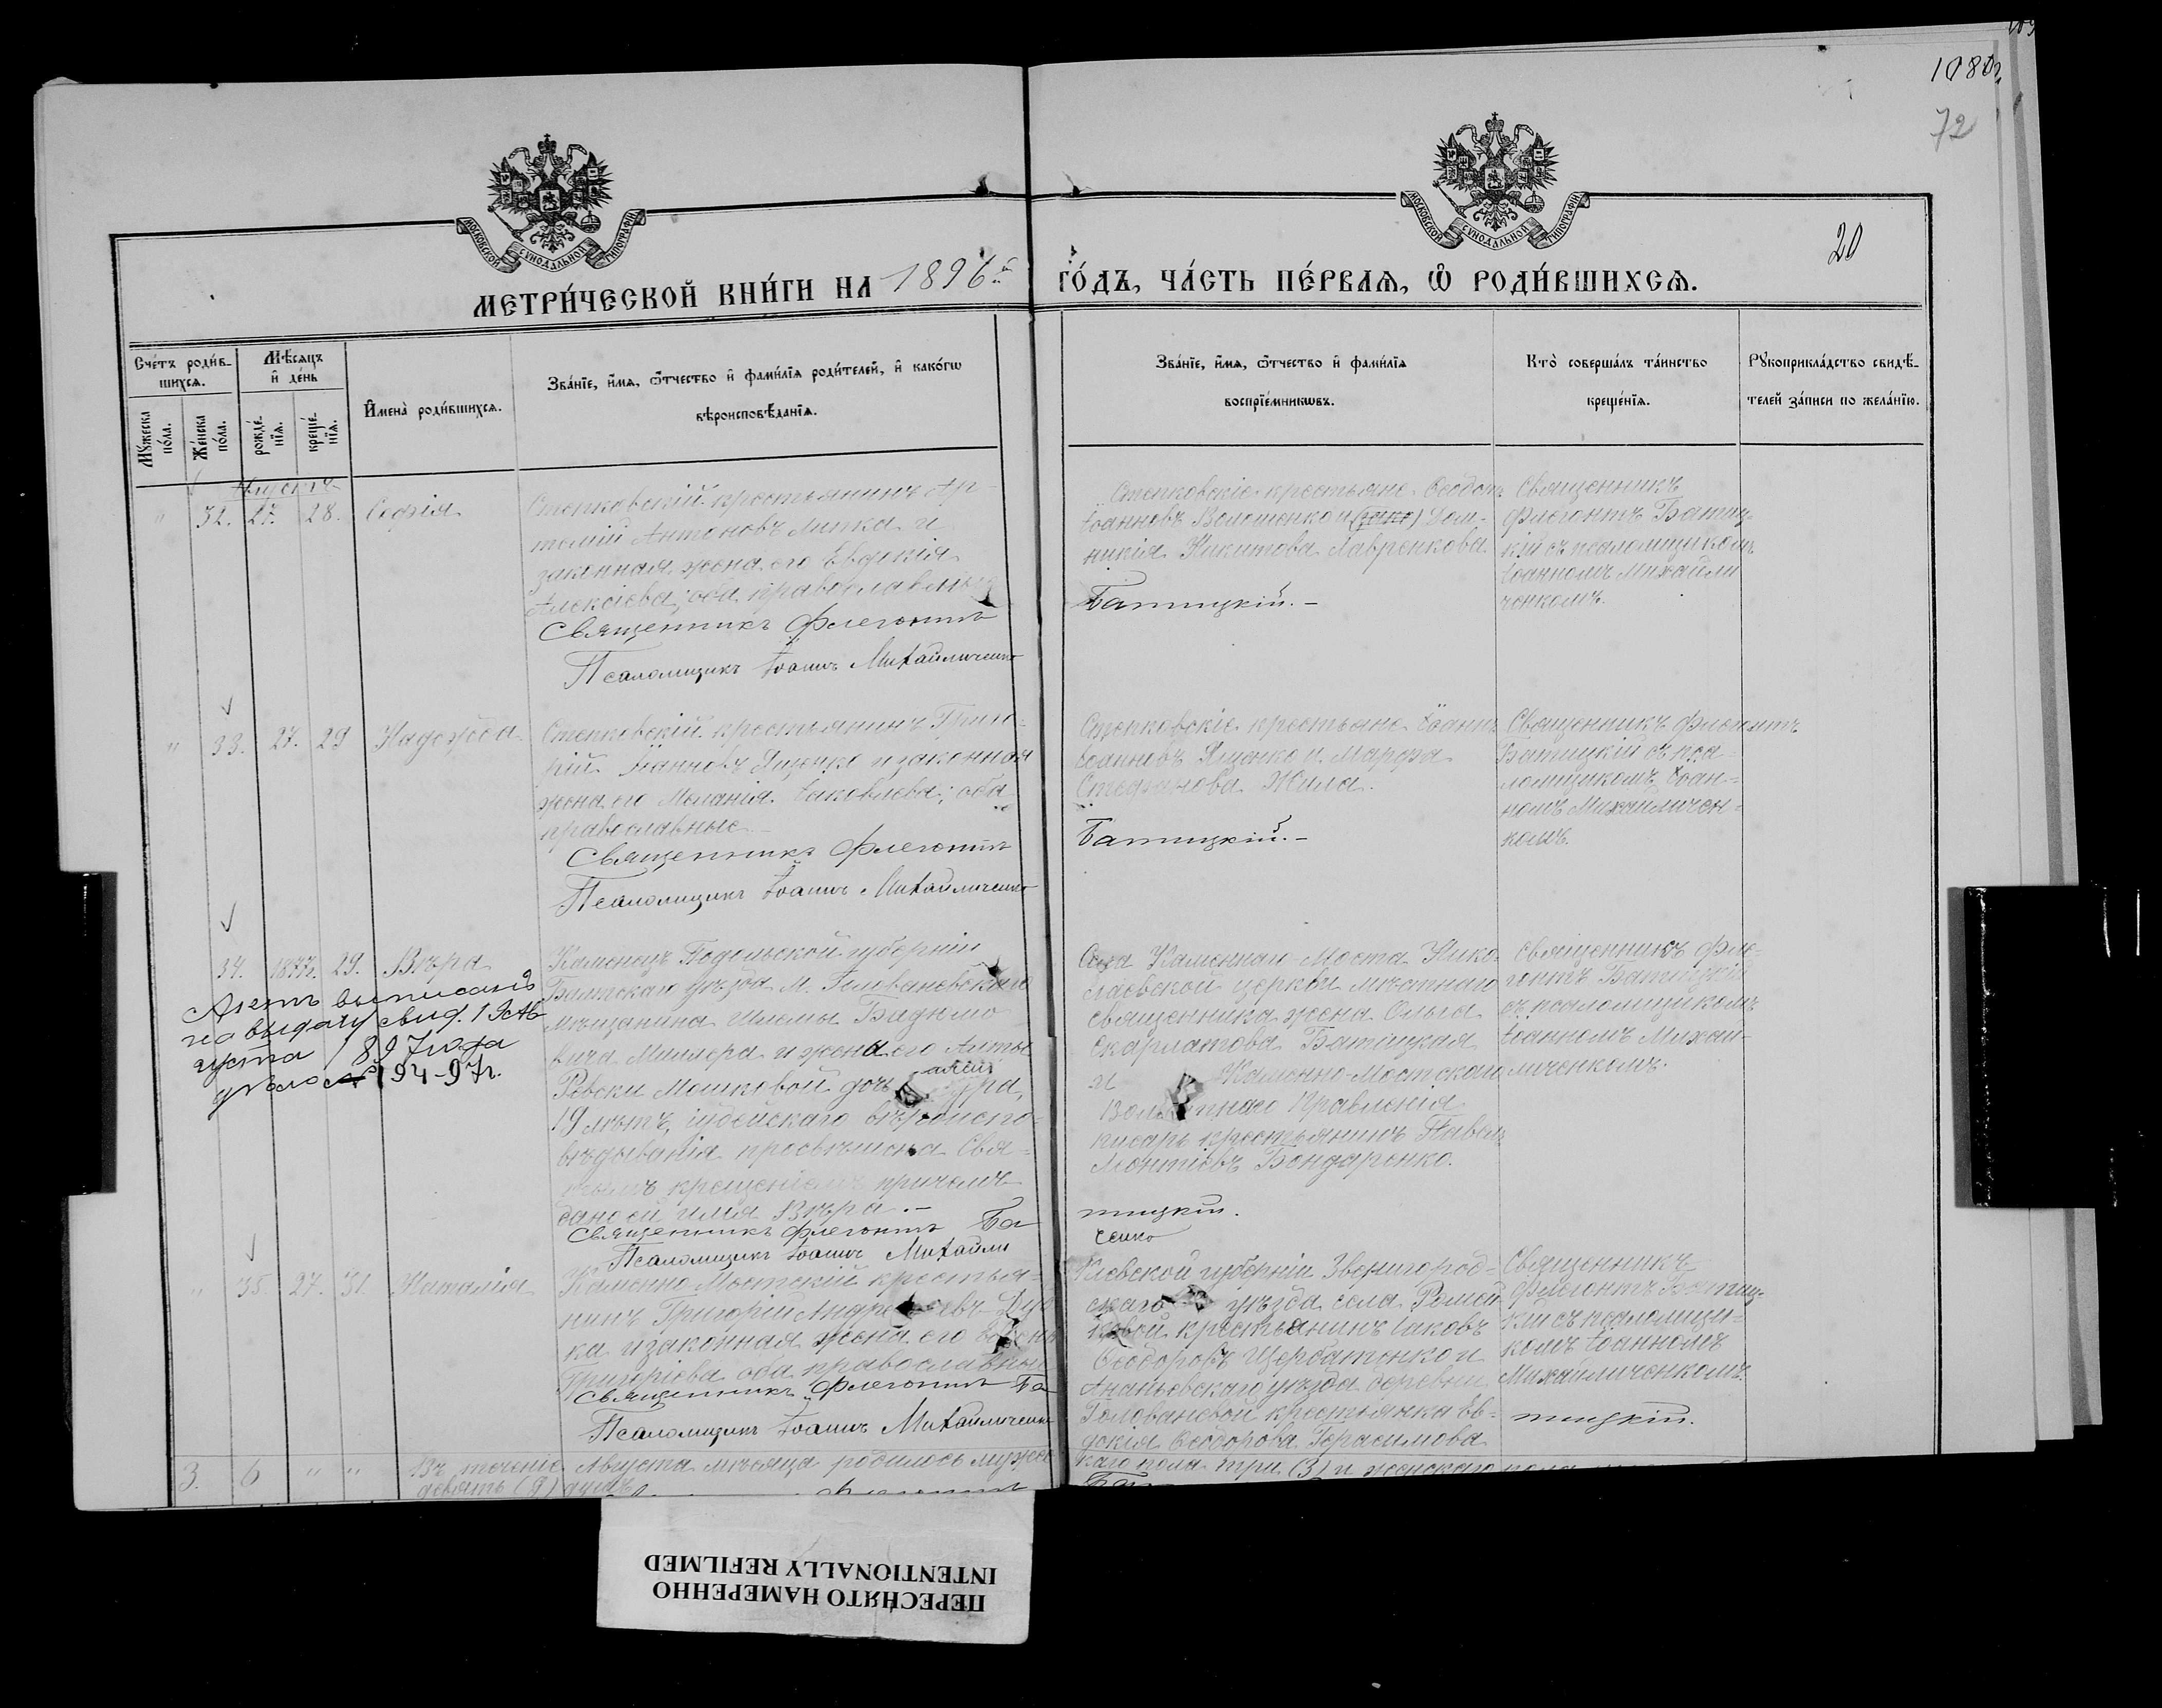 1080
72
20
МОСКОВСКОЙ СѴНОДАЛЬНОЙ ТИПОГРАФІИ
МОСКОВСКОЙ СѴНОДАЛЬНОЙ ТИПОГРАФІИ
МЕТРИ́ЧЕСКОЙ КНИ́ГИ НА 1896 й ГО́ДЪ, ЧА́СТЬ ПЕ́РВАѦ, Ѽ РОДИ́ВШИХСѦ.
Сче́тъ роди́в-
шихсѧ.
Мꙋжеска по́ла.
Же́нска по́ла.
Мѣ́сѧцъ
и҆ де́нь
рожде́-
нїѧ.
креще́-
нїѧ.
И҆мена̀ роди́вшихсѧ.
Зва́нїе, и҆́мѧ, ѻ҆́тчество и҆ фами́лїѧ роди́телей, и҆ како́гѡ
вѣроисповѣ́данїѧ.
Зва́нїе, и҆́мѧ, ѻ҆́тчество и҆ фами́лїѧ
воспрїе́мникѡвъ.
Кто̀ соверша́лъ та́инство
креще́нїѧ.
Рꙋкоприкла́дство свидѣ́-
телей за́писи по жела́нїю.
Августъ
" 32. 27. 28. Софія
Степковскій крестьянинъ Ар-
темій Антоновъ Липка и
законная жена его Евдокія
Алексіева; оба православные
Священникъ Флегонтъ
Псаломщикъ Іоаннъ Михайличенко
Степковскіе крестьяне Ѳеодотъ
Іоанновъ Волошенко и Дом-
никія Никитова Лавренкова.
Батицкій.-
Священникъ
Флегонтъ Батиц-
кій съ псаломщикомъ
Іоанномъ Михайли
ченкомъ.
" 33. 27. 29 Надежда
Степковскій крестьянинъ Григо-
рій Іоанновъ Яценко и законная
жена его Меланія Іаковлева; оба
православные.
Священникъ Флегонтъ
Псаломщикъ Іоаннъ Михайличенко
Степковскіе крестьяне Іоаннъ
Іоанновъ Яценко и Марфа
Стефанова Жила.
Батицкій.-
Священникъ Флегонтъ
Батицкій съ пса-
ломщикомъ Іоан-
номъ Михайличен-
комъ.
34. 1877г. 29. Вѣра
на выдачу свид. 19 Ав
густа 1897 года
194-97г.
Каменецъ Подольской губерніи
Балтскаго уѣзда м. Голованевскаго
мѣщанина Шлемы
вича Миллера и жена его
Ревеки Мошковой дочь
19 лѣтъ, іудейскаго вѣроиспо-
вѣдыванія просвѣщена Свя-
тымъ крещеніемъ причемъ
дано ей имя Вѣра.-
Священникъ Флегонтъ Ба
Псаломщикъ Іоаннъ Михайли
Села Каменнаго-Моста Нико-
лаевской церкви мѣстнаго
священника жена Ольга
Скарлатова Батицкая
и Каменно-Мостскаго
Волостнаго Правленія
писарь крестьянинъ Павелъ
Леонтіевъ Бондаренко.
тицкій.
ченко
Священникъ Фле-
гонтъ Батицкій
съ псаломщикомъ
Іоанномъ Михай-
личенкомъ.
" 35. 27. 31. Наталія
Каменно-Мостскій крестья-
нинъ Григорій
ка и законная жена его
Григоріева оба православные
Священникъ Флегонтъ Ба
Псаломщикъ Іоаннъ Михайличенко
Кіевской губерніи Звенигород-
скаго уѣзда села
крестьянинъ Іаковъ
Ѳеодоровъ Щербатенко и
Ананьевскаго уѣзда деревни
Головановой крестьянка Ев-
докія Ѳеодорова Герасимова
Священникъ
Флегонтъ Батиц-
кій съ псаломщи-
комъ Іоанномъ
Михайличенкомъ.
тицкій.
3. 6 " " Въ теченіе Августа мѣсяца родилось мужес каго пола три (3) и женскаго пола
девять (9) душъ.
Флегонтъ
ПЕРЕСНЯТО НАМЕРЕННО
INTENTIONALLY REFILMED